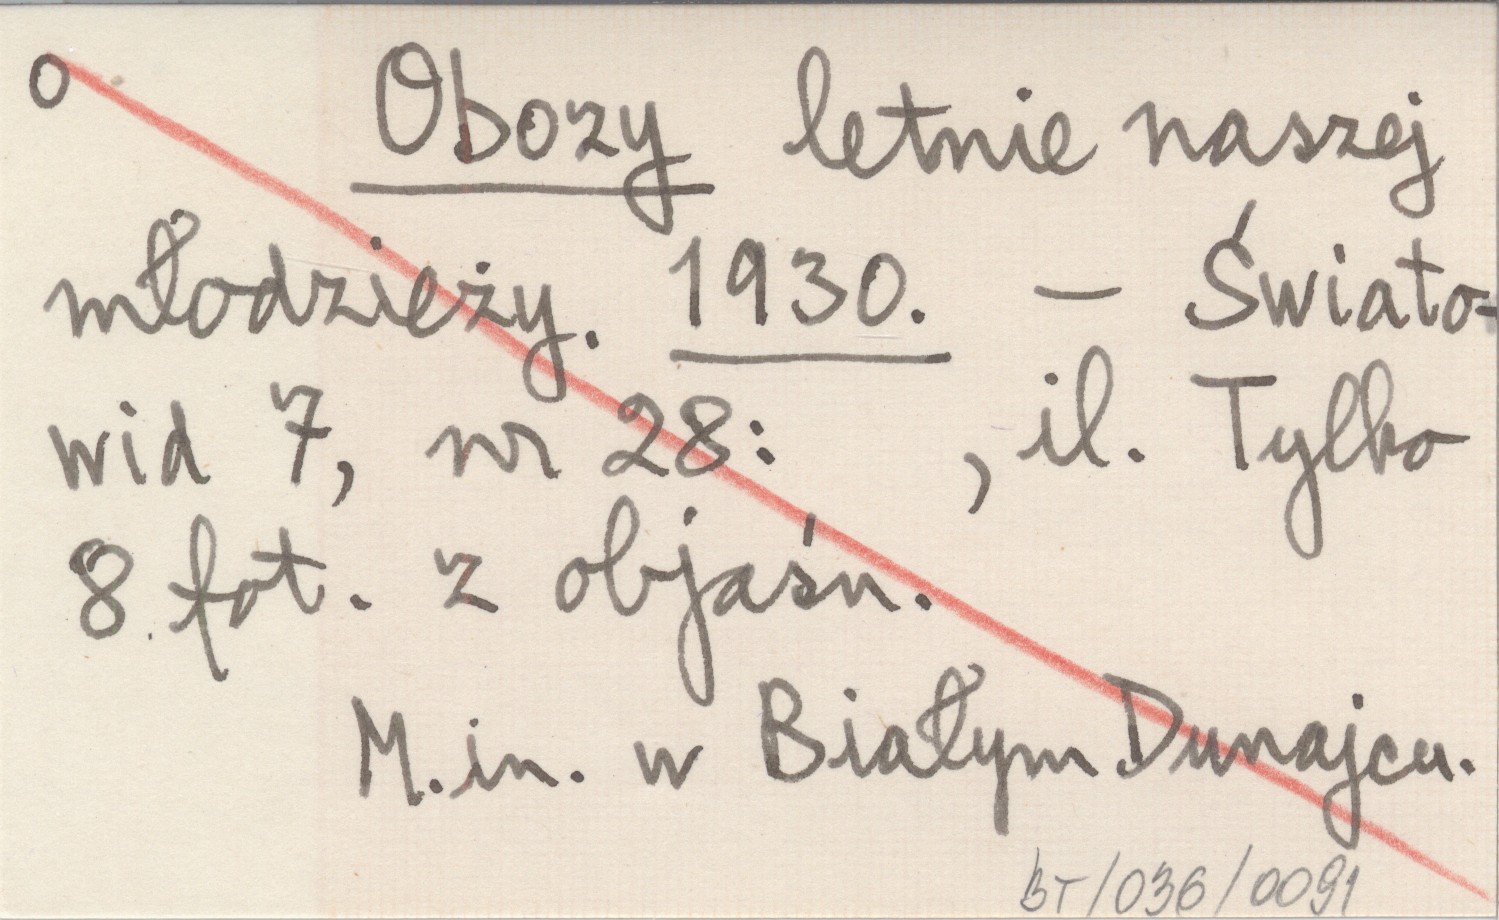 O
Obozy letnie naszej
młodzieży. 1930. — Świato-
wid 7, nr 28:      , il. Tylko
8 fot. z objaśn.
M.in. w Białym Dunajcu.
BT/036/0091